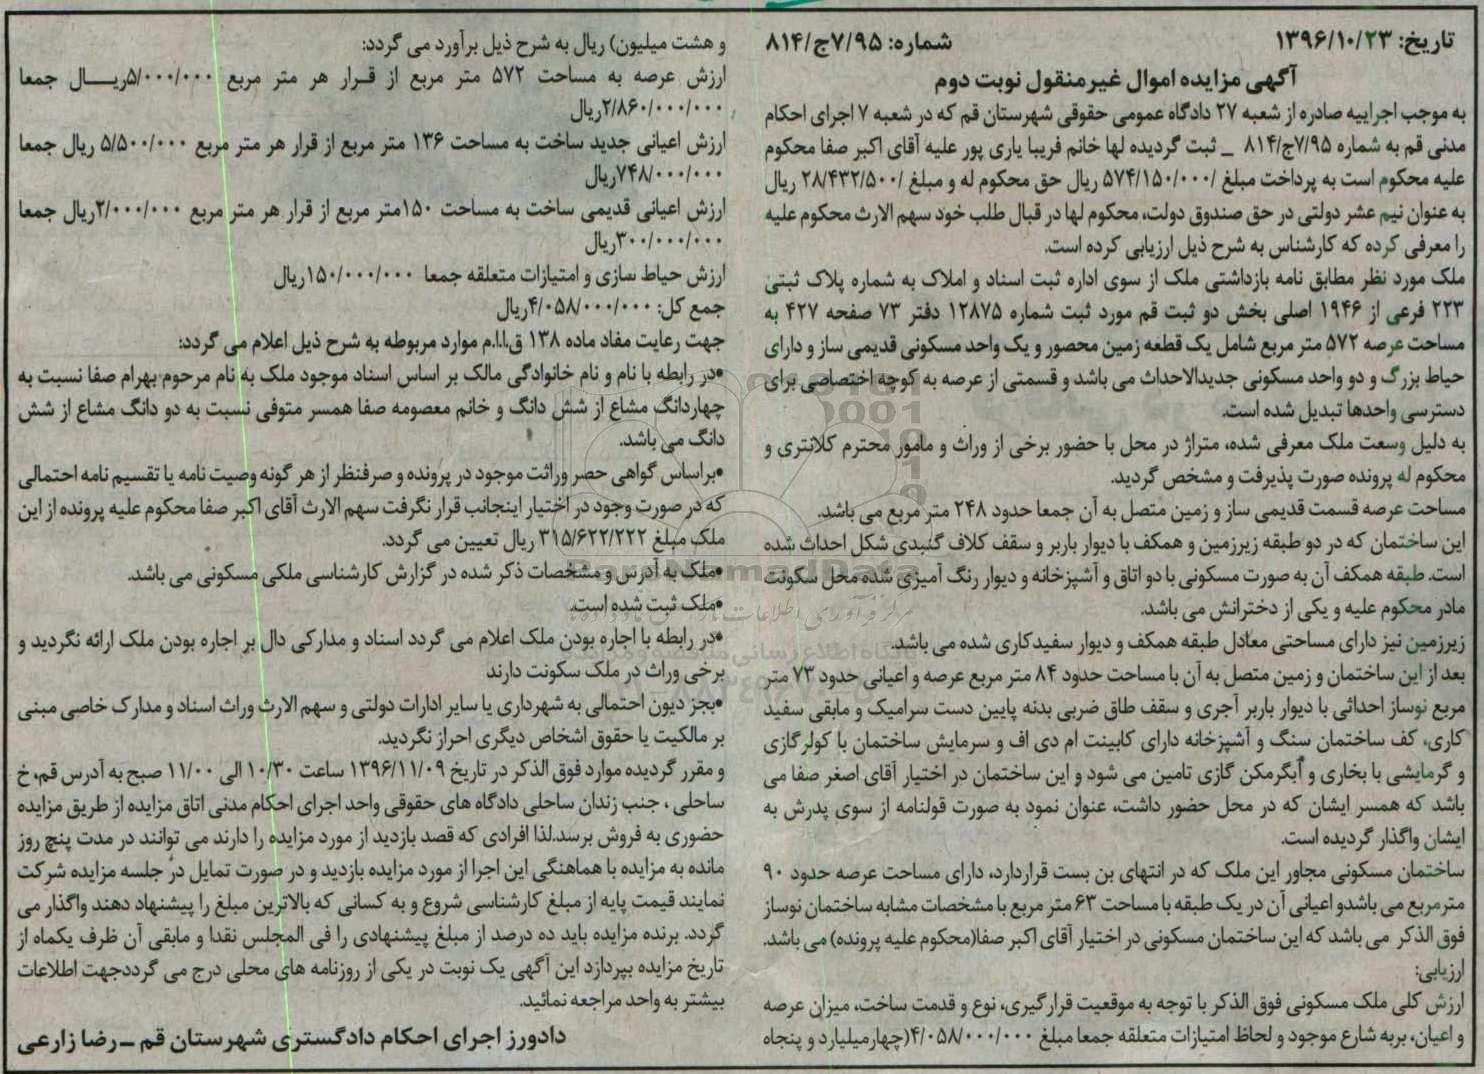 تاریخ: ۱۳۹۶/۱۰/۲۳ شماره: ۷/۹۵ج/۸۱۴
آگهی مزایده اموال غیرمنقول نوبت دوم
به موجب اجراییه صادره از شعبه ۲۷ دادگاه عمومی حقوقی شهرستان قم که در شعبه ۷ اجرای احکام
مدنی قم به شماره ۷/۹۵ج/۸۱۴ _ ثبت گردیده لها خانم فریبا یاری پور علیه آقای اکبر صفا محکوم
علیه محکوم است به پرداخت مبلغ /۵۷۴/۱۵۰/۰۰۰ ریال حق محکوم له و مبلغ /۲۸/۴۳۲/۵۰۰ ریال
به عنوان نیم عشر دولتی در حق صندوق دولت، محکوم لها در قبال طلب خود سهم الارث محکوم علیه
را معرفی کرده که کارشناس به شرح ذیل ارزیابی کرده است.
ملک مورد نظر مطابق نامه بازداشتی ملک از سوی اداره ثبت اسناد و املاک به شماره پلاک ثبتی
۲۲۳ فرعی از ۱۹۴۶ اصلی بخش دو ثبت قم مورد ثبت شماره ۱۲۸۷۵ دفتر ۷۳ صفحه ۴۲۷ به
مساحت عرصه ۵۷۲ متر مربع شامل یک قطعه زمین محصور و یک واحد مسکونی قدیمی ساز و دارای
حیاط بزرگ و دو واحد مسکونی جدیدالاحداث می باشد و قسمتی از عرصه به کوچه اختصاصی برای
دسترسی واحدها تبدیل شده است.
به دلیل وسعت ملک معرفی شده، متراژ در محل با حضور برخی از وراث و مامور محترم کلانتری و
محکوم له پرونده صورت پذیرفت و مشخص گردید.
مساحت عرصه قسمت قدیمی ساز و زمین متصل به آن جمعا حدود ۲۴۸ متر مربع می باشد.
این ساختمان که در دو طبقه زیرزمین و همکف با دیوار باربر و سقف کلاف گنبدی شکل احداث شده
است. طبقه همکف آن به صورت مسکونی با دو اتاق و آشپزخانه و دیوار رنگ آمیزی شده محل سکونت
مادر محکوم علیه و یکی از دخترانش می باشد.
زیرزمین نیز دارای مساحتی معادل طبقه همکف و دیوار سفیدکاری شده می باشد.
بعد از این ساختمان و زمین متصل به آن با مساحت حدود ۸۴ متر مربع عرصه و اعیانی حدود ۷۳ متر
مربع نوساز احداثی با دیوار باربر آجری و سقف طاق ضربی بدنه پایین دست سرامیک و مابقی سفید
کاری، کف ساختمان سنگ و آشپزخانه دارای کابینت ام دی اف و سرمایش ساختمان با کولرگازی
و گرمایشی با بخاری و آبگرمکن گازی تامین می شود و این ساختمان در اختیار آقای اصغر صفا می
باشد که همسر ایشان که در محل حضور داشت، عنوان نمود به صورت قولنامه از سوی پدرش به
ایشان واگذار گردیده است.
ساختمان مسکونی مجاور این ملک که در انتهای بن بست قراردارد، دارای مساحت عرصه حدود ۹۰
مترمربع می باشدو اعیانی آن در یک طبقه با مساحت ۶۳ متر مربع با مشخصات مشابه ساختمان نوساز
فوق الذکر می باشد که این ساختمان مسکونی در اختیار آقای اکبر صفا(محکوم علیه پرونده) می باشد.
ارزیابی:
ارزش کلی ملک مسکونی فوق الذکر با توجه به موقعیت قرارگیری، نوع و قدمت ساخت، میزان عرصه
و اعیان، بربه شارع موجود و لحاظ امتیازات متعلقه جمعا مبلغ ۴/۰۵۸/۰۰۰/۰۰۰(چهارمیلیارد و پنجاه
و هشت میلیون) ریال به شرح ذیل برآورد می گردد:
ارزش عرصه به مساحت ۵۷۲ متر مربع از قرار هر متر مربع ۵/۰۰۰/۰۰۰ریال جمعا
۲/۸۶۰/۰۰۰/۰۰۰ریال
ارزش اعیانی جدید ساخت به مساحت ۱۳۶ متر مربع از قرار هر متر مربع ۵/۵۰۰/۰۰۰ ریال جمعا
۷۴۸/۰۰۰/۰۰۰ریال
ارزش اعیانی قدیمی ساخت به مساحت ۱۵۰متر مربع از قرار هر متر مربع ۲/۰۰۰/۰۰۰ریال جمعا
۳۰۰/۰۰۰/۰۰۰ریال
ارزش حیاط سازی و امتیازات متعلقه جمعا ۱۵۰/۰۰۰/۰۰۰ریال
جمع کل: ۴/۰۵۸/۰۰۰/۰۰۰ریال
جهت رعایت مفاد ماده ۱۳۸ ق.ا.ا.م موارد مربوطه به شرح ذیل اعلام می گردد:
•در رابطه با نام و نام خانوادگی مالک بر اساس اسناد موجود ملک به نام مرحوم بهرام صفا نسبت به
چهاردانگ مشاع از شش دانگ و خانم معصومه صفا همسر متوفی نسبت به دو دانگ مشاع از شش
دانگ می باشد.
•براساس گواهی حصر وراثت موجود در پرونده و صرفنظر از هر گونه وصیت نامه یا تقسیم نامه احتمالی
که در صورت وجود در اختیار اینجانب قرار نگرفت سهم الارث آقای اکبر صفا محکوم علیه پرونده از این
ملک مبلغ ۳۱۵/۶۲۲/۲۲۲ ریال تعیین می گردد.
•ملک به آدرس و مشخصات ذکر شده در گزارش کارشناسی ملکی مسکونی می باشد.
•ملک ثبت شده است.
•در رابطه با اجاره بودن ملک اعلام می گردد اسناد و مدارکی دال بر اجاره بودن ملک ارائه نگردید و
برخی وراث در ملک سکونت دارند
•بجز دیون احتمالی به شهرداری یا سایر ادارات دولتی و سهم الارث وراث اسناد و مدارک خاصی مبنی
بر مالکیت یا حقوق اشخاص دیگری احراز نگردید.
و مقرر گردیده موارد فوق الذکر در تاریخ ۱۳۹۶/۱۱/۰۹ ساعت ۱۰/۳۰ الی ۱۱/۰۰ صبح به آدرس قم، خ
ساحلی ، جنب زندان ساحلی دادگاه های حقوقی واحد اجرای احکام مدنی اتاق مزایده از طریق مزایده
حضوری به فروش برسد.لذا افرادی که قصد بازدید از مورد مزایده را دارند می توانند در مدت پنج روز
مانده به مزایده با هماهنگی این اجرا از مورد مزایده بازدید و در صورت تمایل در جلسه مزایده شرکت
نمایند قیمت پایه از مبلغ کارشناسی شروع و به کسانی که بالاترین مبلغ را پیشنهاد دهند واگذار می
گردد. برنده مزایده باید ده درصد از مبلغ پیشنهادی را فی المجلس نقدا و مابقی آن ظرف یکماه از
تاریخ مزایده بپردازد این آگهی یک نوبت در یکی از روزنامه های محلی درج می گرددجهت اطلاعات
بیشتر به واحد مراجعه نمائید.
دادورز اجرای احکام دادگستری شهرستان قم ـ رضا زارعی